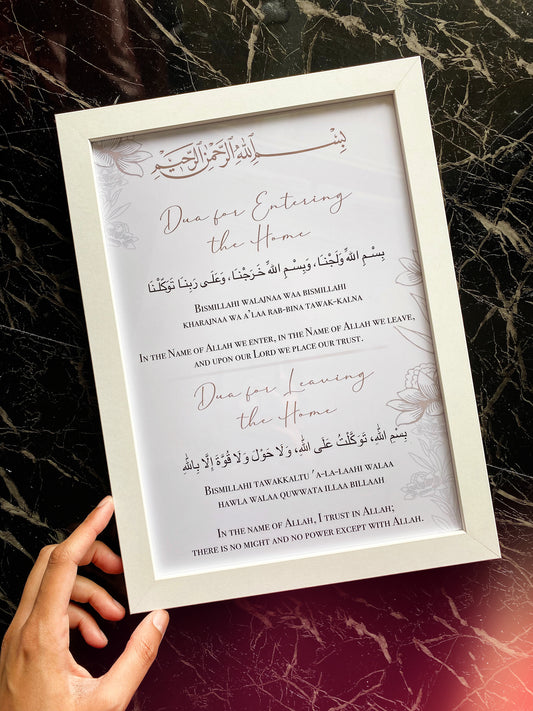 بِسْمِ ٱللَّٰهِ ٱلرَّحْمَٰنِ ٱلرَّحِيمِ
Dua for Entering
the Home
بِسْمِ اللَّهِ وَلَجْنَا، وَبِسْمِ اللَّهِ خَرَجْنَا، وَعَلَى رَبِنَا تَوَكَّلْنَا
Bismillahi walajnaa waa bismillahi
kharajnaa wa a'laa rab-bina tawak-kalna
In the Name of Allah we enter, in the Name of Allah we leave,
and upon our Lord we place our trust.
Dua for Leaving
the Home
بِسْمِ اللهِ، تَوَكَّلْتُ عَلَى اللهِ، وَلَا حَوْلَ وَلَا قُوَّةَ إِلَّا بِاللهِ
Bismillahi tawakkaltu 'a-la-laahi walaa
hawla walaa quwwata illaa billaah
In the name of Allah, I trust in Allah;
there is no might and no power except with Allah.